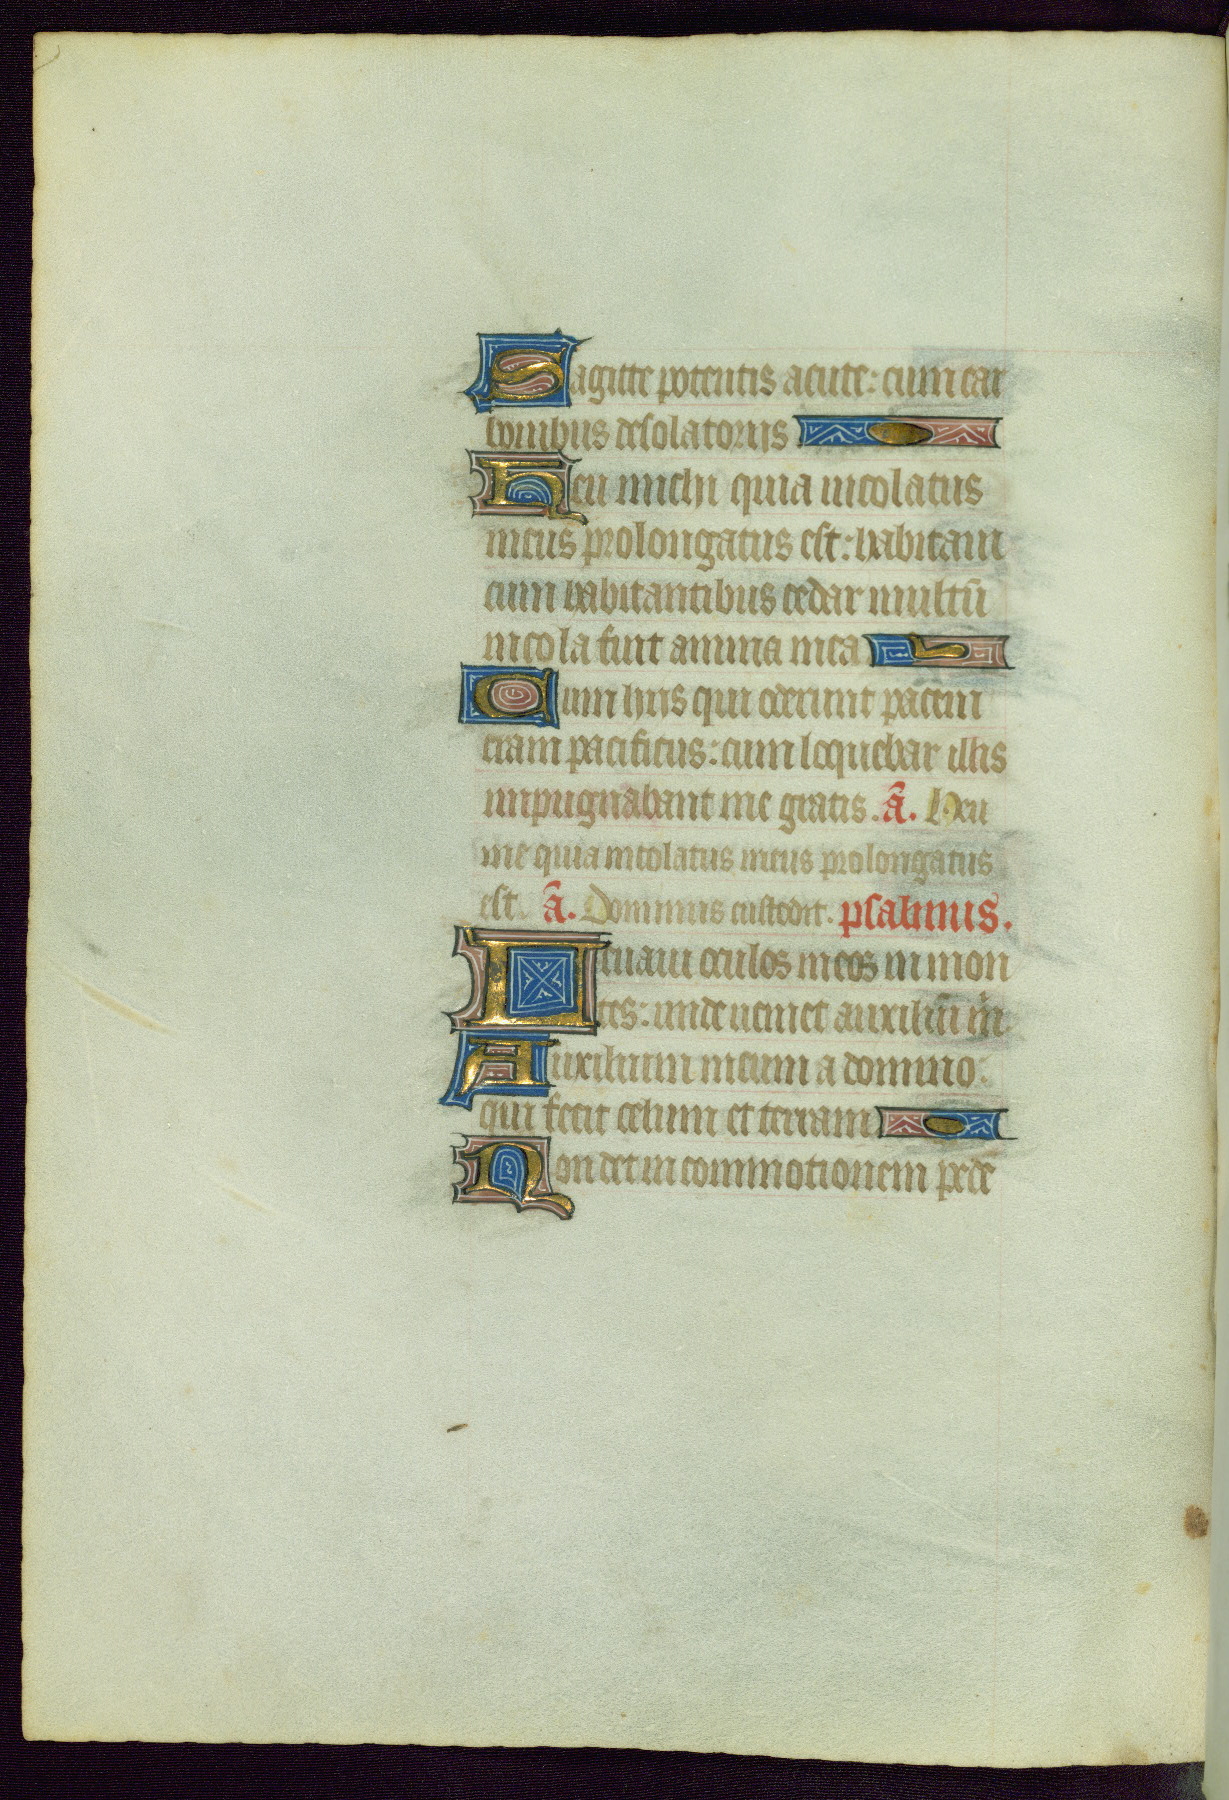 Sagitte potentis acute: cum car
bonibus desolatoriis
Heu michi quia incolatus
meus prolongatus est: habitaui
cum habitantibus cedar multū
incola fuit anima mea
Cum hiis qui oderunt pacem
eram pacificus: cum loquebar illis
impugnabant me gratis. ā. Heu
me quia incolatus meus prolongatus
est. ā. Dominus custodit. psalmus.
Leuaui oculos meos in mon
tes: unde ueniet auxiliū m̄
Auxilium meum a domino:
qui fecit celum et terram
Non det in commotionem pede